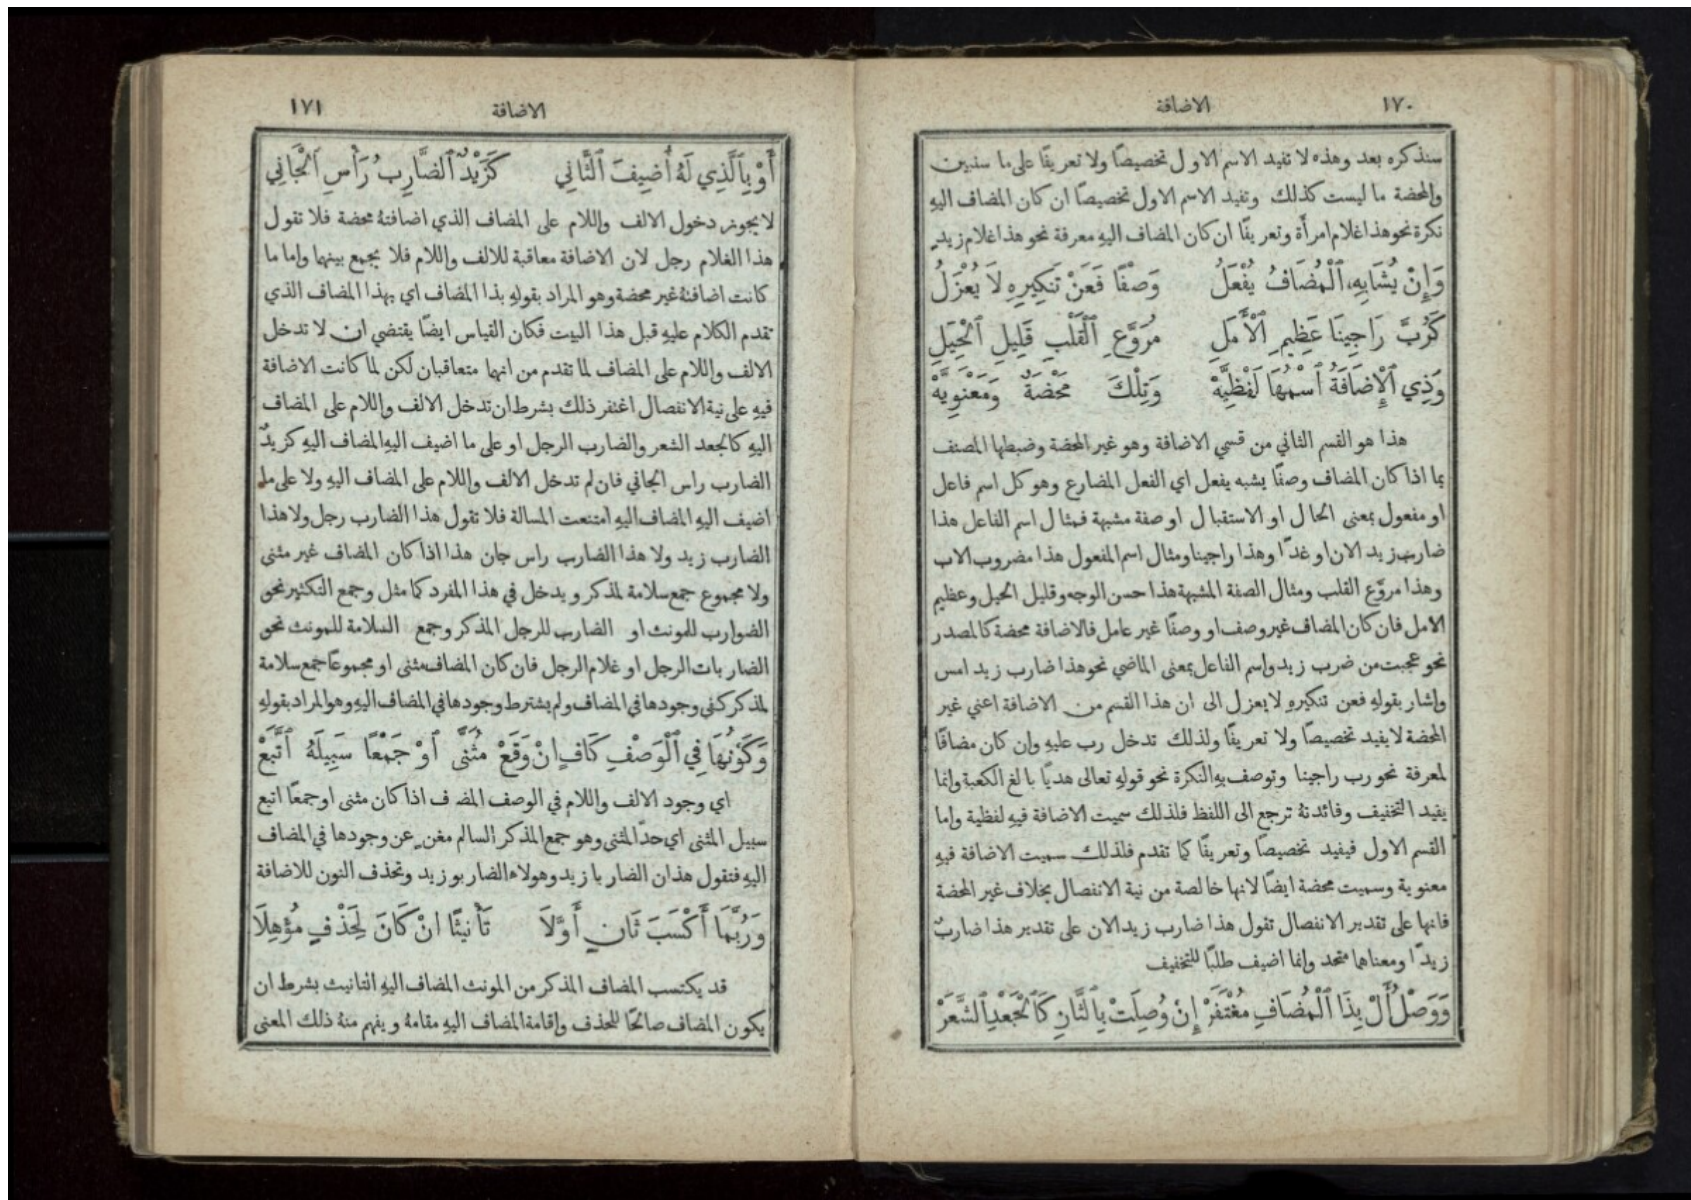 ١٧٠ الاضافة
سنذكره بعد وهذه لا تفيد الاسم الاول تخصيصًا ولا تعريفًا على ما سنبين
والمحضة ما ليست كذلك وتفيد الاسم الاول تخصيصًا ان كان المضاف اليهِ
نكرة نحو هذا غلام امرأة وتعريفًا ان كان المضاف اليهِ معرفة نحو هذا غلام زيدٍ
وَإِنْ يُشَابِهِ ٱلْمُضَافُ يَفْعَلُ وَصْفًا فَعَنْ تَنكِيرِهِ لَا يُعْزَلُ
كَرُبَّ رَاجِينَا عَظِيمِ ٱلْأَمَلِ مُرَوَّعِ ٱلْقَلْبِ قَلِيلِ ٱلْحِيَلِ
وَذِي ٱلْإِضَافَةُ ٱسْمُهَا لَفْظِيَّهْ وَتِلْكَ مَحْضَةٌ وَمَعْنَوِيَّهْ
هذا هو القسم الثاني من قسمي الاضافة وهو غير المحضة وضبطها المصنف
بما اذا كان المضاف وصفًا يشبه يفعل اي الفعل المضارع وهو كل اسم فاعل
او مفعول بمعنى الحال او الاستقبال او صفة مشبهة فمثال اسم الفاعل هذا
ضارب زيد الان او غدًا وهذا راجينا ومثال اسم المفعول هذا مضروب الاب
وهذا مروّع القلب ومثال الصفة المشبهة هذا حسن الوجه وقليل الحيل وعظيم
الامل فان كان المضاف غير وصف او وصفًا غير عامل فالاضافة محضة كالمصدر
نحو عجبت من ضرب زيد واسم الفاعل بمعنى الماضي نحو هذا ضارب زيد امس
واشار بقولهِ فعن تنكيرهِ لا يعزل الى ان هذا القسم من الاضافة اعني غير
المحضة لا يفيد تخصيصًا ولا تعريفًا ولذلك تدخل رب عليهِ وان كان مضافًا
لمعرفة نحو رب راجينا وتوصف بهِ النكرة نحو قولهِ تعالى هديًا بالغ الكعبة وانما
يفيد التخفيف وفائدتهُ ترجع الى اللفظ فلذلك سميت الاضافة فيهِ لفظية واما
القسم الاول فيفيد تخصيصًا وتعريفًا كما تقدم فلذلك سميت الاضافة فيهِ
معنوية وسميت محضة ايضًا لانها خالصة من نية الانفصال بخلاف غير المحضة
فانها على تقدير الانفصال تقول هذا ضارب زيد الان على تقدير هذا ضاربٌ
زيدًا ومعناهما متحد وانما اضيف طلبًا للتخفيف
وَوَصْلُ أَلْ بِذَا ٱلْمُضَافِ مُغْتَفَرْ إِنْ وُصِلَتْ بِٱلثَّانِ كَٱلْجَعْدِ ٱلشَّعَرْ
الاضافة ١٧١
أَوْ بِٱلَّذِي لَهُ أُضِيفَ ٱلثَّانِي كَزَيْدٌ ٱلضَّارِبُ رَأْسِ ٱلْجَانِي
لا يجوز دخول الالف واللام على المضاف الذي اضافتهُ محضة فلا تقول
هذا الغلام رجل لان الاضافة معاقبة للالف واللام فلا يجمع بينهما واما ما
كانت اضافتهُ غير محضة وهو المراد بقولهِ بذا المضاف اي بهذا المضاف الذي
تقدم الكلام عليهِ قبل هذا البيت فكان القياس ايضًا يقتضي ان لا تدخل
الالف واللام على المضاف لما تقدم من انهما متعاقبان لكن لما كانت الاضافة
فيهِ على نية الانفصال اغتفر ذلك بشرط ان تدخل الالف واللام على المضاف
اليهِ كالجعد الشعر والضارب الرجل او على ما اضيف اليهِ المضاف اليهِ كزيدٌ
الضارب راس الجاني فان لم تدخل الالف واللام على المضاف اليهِ ولا على ما
اضيف اليهِ المضاف اليهِ امتنعت المسالة فلا تقول هذا الضارب رجل ولا هذا
الضارب زيد ولا هذا الضارب راس جان هذا اذا كان المضاف غير مثنى
ولا مجموع جمع سلامة لمذكر ويدخل في هذا المفرد كما مثل وجمع التكثير نحو
الضوارب للمونث او الضارب للرجل المذكر وجمع السلامة للمونث نحو
الضاربات الرجل او غلام الرجل فان كان المضاف مثنى او مجموعًا جمع سلامة
لمذكر كفى وجودها في المضاف ولم يشترط وجودها في المضاف اليهِ وهو المراد بقولهِ
وَكَوْنُهَا فِي ٱلْوَصْفِ كَافٍ انْ وَقَعْ مُثَنًّى ٱوْ جَمْعًا سَبِيلَهُ ٱتَّبَعْ
اي وجود الالف واللام في الوصف المضاف اذا كان مثنى او جمعًا اتبع
سبيل المثنى اي حدّ المثنى وهو جمع المذكر السالم مغنٍ عن وجودها في المضاف
اليهِ فتقول هذان الضاربا زيد وهولاء الضاربو زيد وتحذف النون للاضافة
وَرُبَّمَا أَكْسَبَ ثَانٍ أَوَّلَا تَأْنِيثًا انْ كَانَ لِحَذْفٍ مُوْهَلَا
قد يكتسب المضاف المذكر من المونث المضاف اليهِ التانيث بشرط ان
يكون المضاف صالحًا للحذف واقامة المضاف اليهِ مقامهُ ويفهم منهُ ذلك المعنى